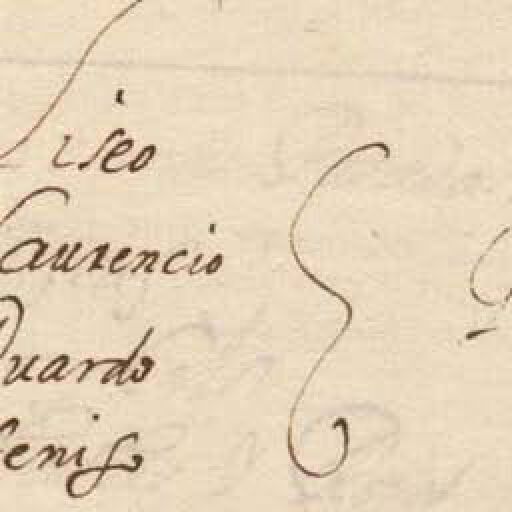 Liseo
Laurencio
Duardo
feniso